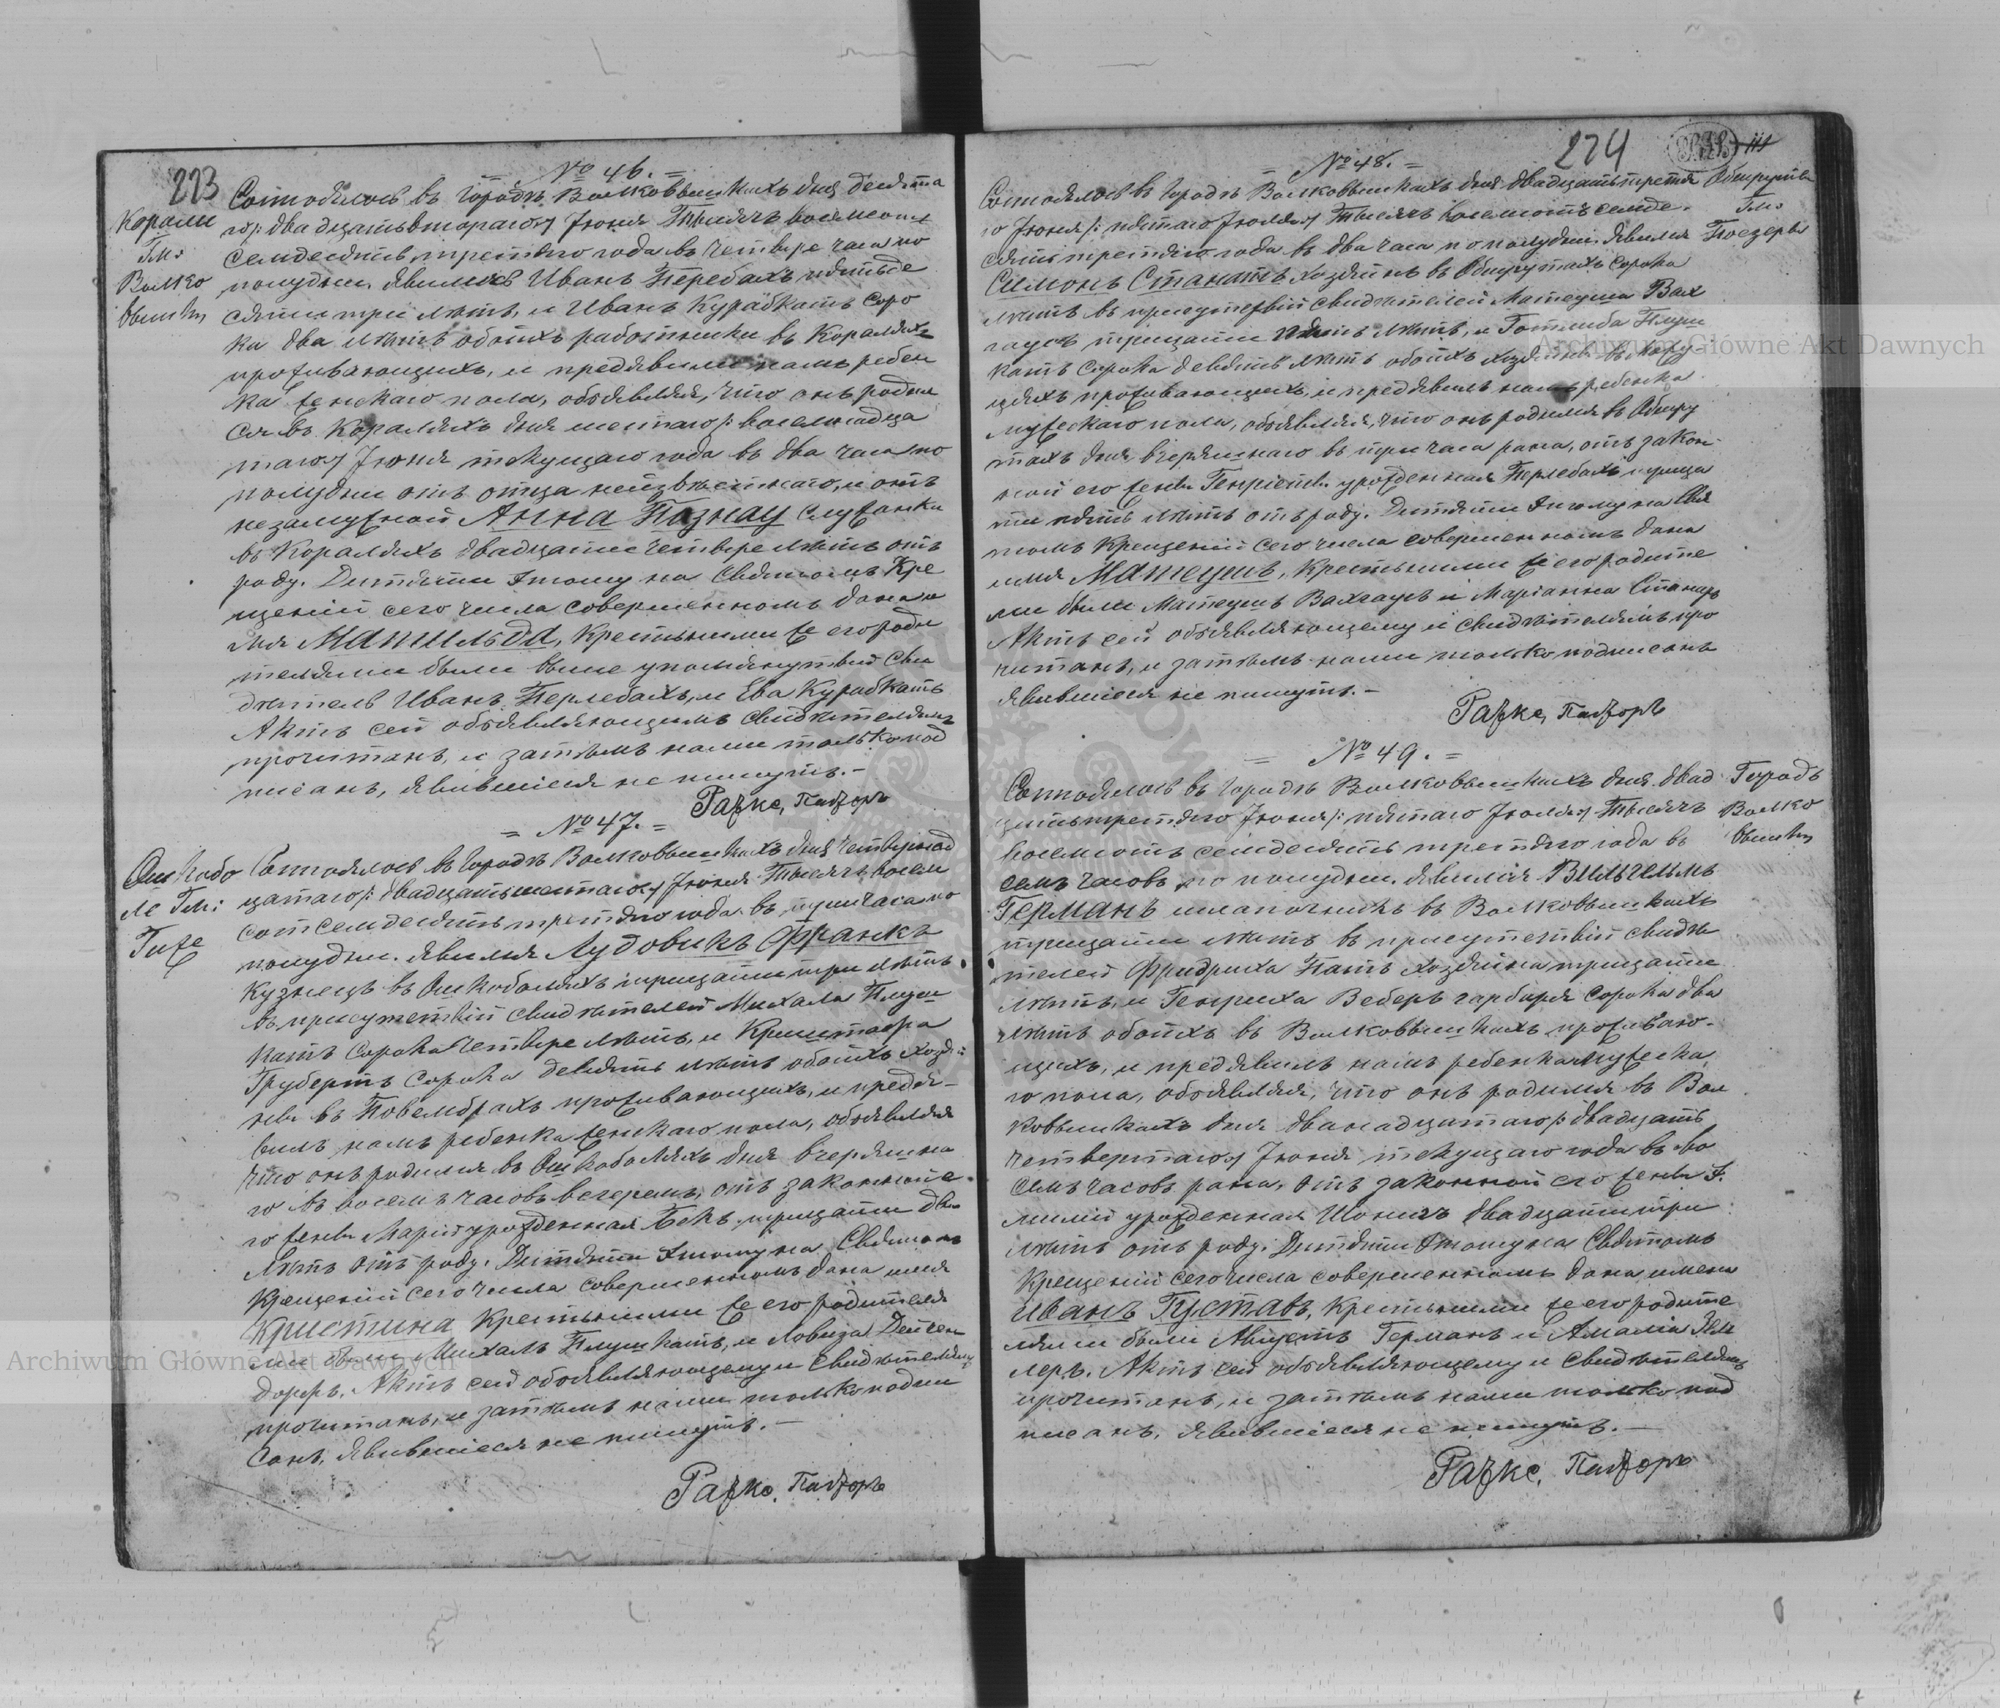 223
№ 46.
Корали
Гм:
Волко
вышки
Состоялось въ городѣ Волковышкахъ дня десята
го /: двадцать втораго :/ Іюня Тысяча восемьсотъ
семдесятъ третьяго года въ четыре часа по
полудни. Явились Иванъ Перебахъ пятьде
сятъ три лѣтъ, и Иванъ Курапкатъ соро
ка два лѣтъ обоихъ работники въ Кораляхъ
проживающихъ, и предъявили намъ ребен
ка женскаго пола, объявляя, что онъ родил
ся въ Кораляхъ дня шестаго /: восемнадца
таго :/ Іюня текущаго года въ два часа по
полудни отъ отца неизвѣстнаго, и отъ
незамужной Анна Познау служанки
въ Кораляхъ двадцати четыре лѣтъ отъ
роду. Дитяти этому на Святомъ Кре
щеніи сего числа совершенномъ дано и
мя Матильда, крестными же его роди
телями были выше упомянутый сви
дѣтель Иванъ Перлебахъ, и Ева Курапкатъ
Актъ сей объявляющимъ свидѣтелямъ
прочитанъ, и затѣмъ нами только под
писанъ, явившіеся не пишутъ. –
Разке, Пасторъ
= № 47. =
Ошкобо
ле Гм:
Гиже
Состоялось въ городѣ Волковышкахъ дня четырнад
цатаго /: двадцать шестаго :/ Іюня Тысяча восем
сотъ семдесятъ третьяго года въ три часа по
полудни. Явился Лудовикъ Франкъ
кузнецъ въ Ошкоболяхъ тридцати три лѣтъ
въ присутствіи свидѣтелей Михала Плуш
катъ сорока четыре лѣтъ, и Криштофа
Грубертъ сорока девять лѣтъ обоихъ хозя-
евъ въ Повембрахъ проживающихъ, и предъя-
вилъ намъ ребенка женскаго пола, объявляя
что онъ родился въ Ошкоболяхъ дня вчерашня
го въ восемъ часовъ вечеромъ, отъ законной е-
го жены Маріи урожденная Бекъ тридцати два
лѣтъ отъ роду. Дитяти этому на Святомъ
Крещеніи сего числа совершенномъ дано имя
Кристина крестными же его родителя
ми были Михалъ Плушкатъ, и Ловиза Дейчен
дорфъ. Актъ сей объявляющему и свидѣтелямъ
прочитанъ, и затѣмъ нами только подпи
санъ, явившіеся не пишутъ. –
Разке, Пасторъ
224
– № 48. =
Обшруты
Гм:
Поезеры
Состоялось въ городѣ Волковышкахъ дня двадцать третья
го Іюня /: пятаго Іюля :/ Тысяча восемсотъ семде-
сятъ третьяго года въ два часа по полудни. Явился
Симонъ Станатъ хозяинъ въ Обшрутахъ сорока
лѣтъ въ присутствіи свидѣтелей Матеуша Вах
гаусъ тридцати пять лѣтъ, и Готлиба Плуш
катъ сорока девять лѣтъ обоихъ хозяевъ
щихъ проживающихъ, и предъявилъ намъ ребенка
мужескаго пола, объявляя, что онъ родился въ Обшру
тахъ дня вчерашняго въ три часа рана, отъ закон-
ной его жены Генріеты урожденная Перлебахъ тридца
ти пять лѣтъ отъ роду. Дитяти этому на Свя
томъ Крещеніи сего числа совершенномъ дано
имя Матеушъ, крестными же его родите
ми были Матеушъ Вахгаусъ и Маріанна Станатъ
Актъ сей объявляющему и свидѣтелямъ про
читанъ, и затѣмъ нами только подписанъ
явившіеся не пишутъ. –
Разке, Пасторъ
= № 49. =
Городъ
Волко
вышки
Состоялось въ городѣ Волковышкахъ дня двад
цать третьяго Іюня /: пятаго Іюля :/ Тысяча
восемсотъ семдесятъ третьяго года въ
семъ часовъ по полудни. Явился Вильгельмъ
Германъ шапочникъ въ Волковышкахъ
тридцати лѣтъ въ присутствіи свидѣ
телей Фридриха Патъ хозяина тридцати
лѣтъ, и Генриха Веберъ гарбаря сорока два
лѣтъ обоихъ въ Волковышкахъ проживаю-
щихъ, и предъявилъ намъ ребенка мужеска
го пола, объявляя, что онъ родился въ Вол
ковышкахъ дня дванадцатаго /: двадцать
четвертаго :/ Іюня текущаго года въ во
семъ часовъ рана, отъ законной его жены Э-
миліи урожденная Шонигъ двадцати три
лѣтъ отъ роду. Дитяти этому на Святомъ
Крещеніи сего числа совершенномъ дано имена
Иванъ Густавъ, крестными же его родите
лями были Августъ Германъ и Амалія
леръ. Актъ сей объявляющему и свидѣтелямъ
прочитанъ, и затѣмъ нами только под
писанъ, явившіеся не пишутъ. –
Разке, Пасторъ
Archiwum Główne Akt Dawnych
Archiwum Główne Akt Dawnych